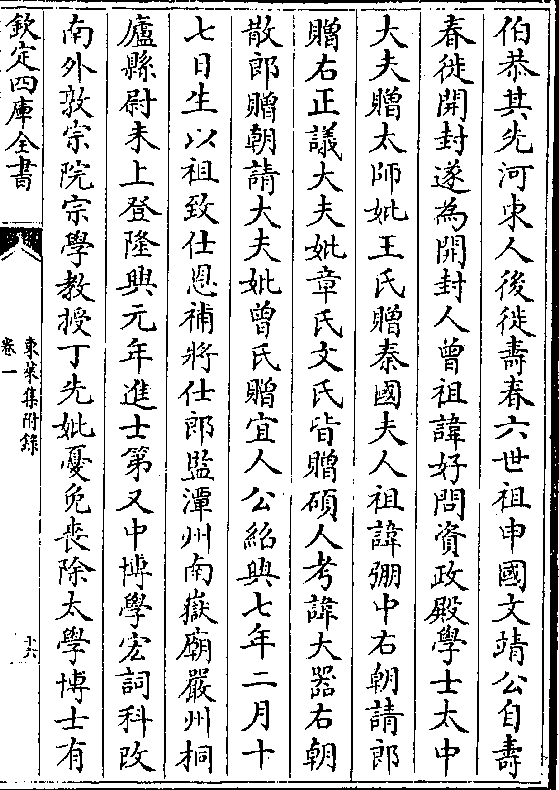 伯恭其先河東人後徙壽春六世祖申國文靖公自壽
春徙開封遂為開封人曾祖諱好問資政殿學士太中
大夫贈太師妣王氏贈秦國夫人祖諱弸中右朝請郎
贈右正議大夫妣章氏文氏皆贈碩人考諱大器右朝
散郎贈朝請大夫妣曾氏贈宜人公紹興七年二月十
七日生以祖致仕恩補將仕郎監潭州南嶽廟嚴州桐
廬縣尉未上登隆興元年進士第又中博學宏詞科改
南外敦宗院宗學教授丁先妣憂免喪除太學博士有
欽定四庫全書
東萊集附錄
卷一
十六